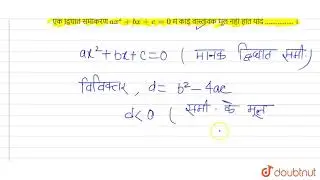 एक द्विघात समीकरण ax² + bx + c = 0 में कोई वास्तविक मूल नहीं होते यदि ............... ।
ax² + bx + c = 0 ( मानक द्विघात समी॰)
विविक्तर, d = b² - 4ac
d < 0 ( समी॰ के मूल
doubtnut